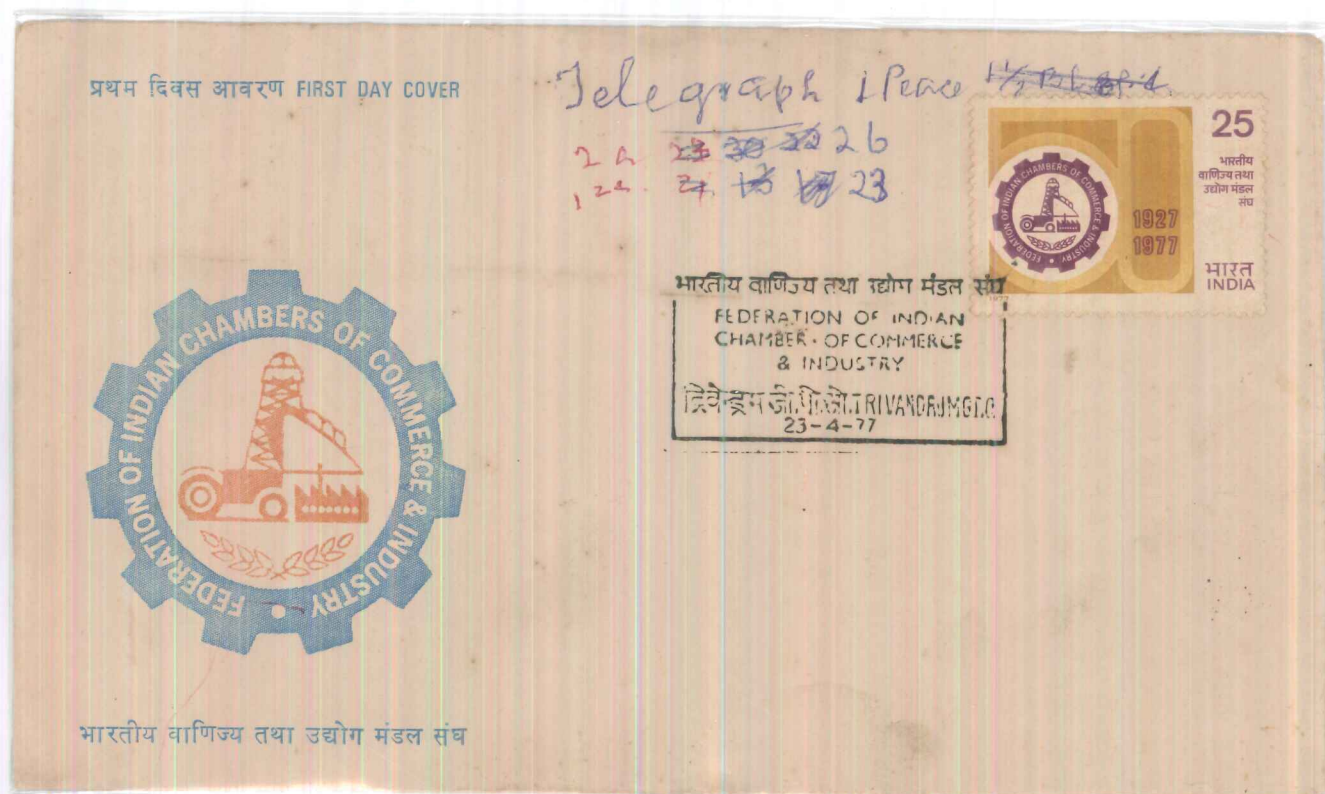 प्रथम दिवस आवरण FIRST DAY COVER
Telegraph 1 Pence
2a 26
12a. 23
25
भारतीय
वाणिज्य तथा
उद्योग मंडल
संघ
FEDERATION OF INDIAN CHAMBERS OF COMMERCE & INDUSTRY
1927
1977
भारत
INDIA
भारतीय वाणिज्य तथा उद्योग मंडल संघ
FEDERATION OF INDIAN
CHAMBER · OF COMMERCE
& INDUSTRY
त्रिवेन्द्रम जी.पी.ओ. TRIVANDRUM G.P.O.
23-4-77
FEDERATION OF INDIAN CHAMBERS OF COMMERCE & INDUSTRY
भारतीय वाणिज्य तथा उद्योग मंडल संघ